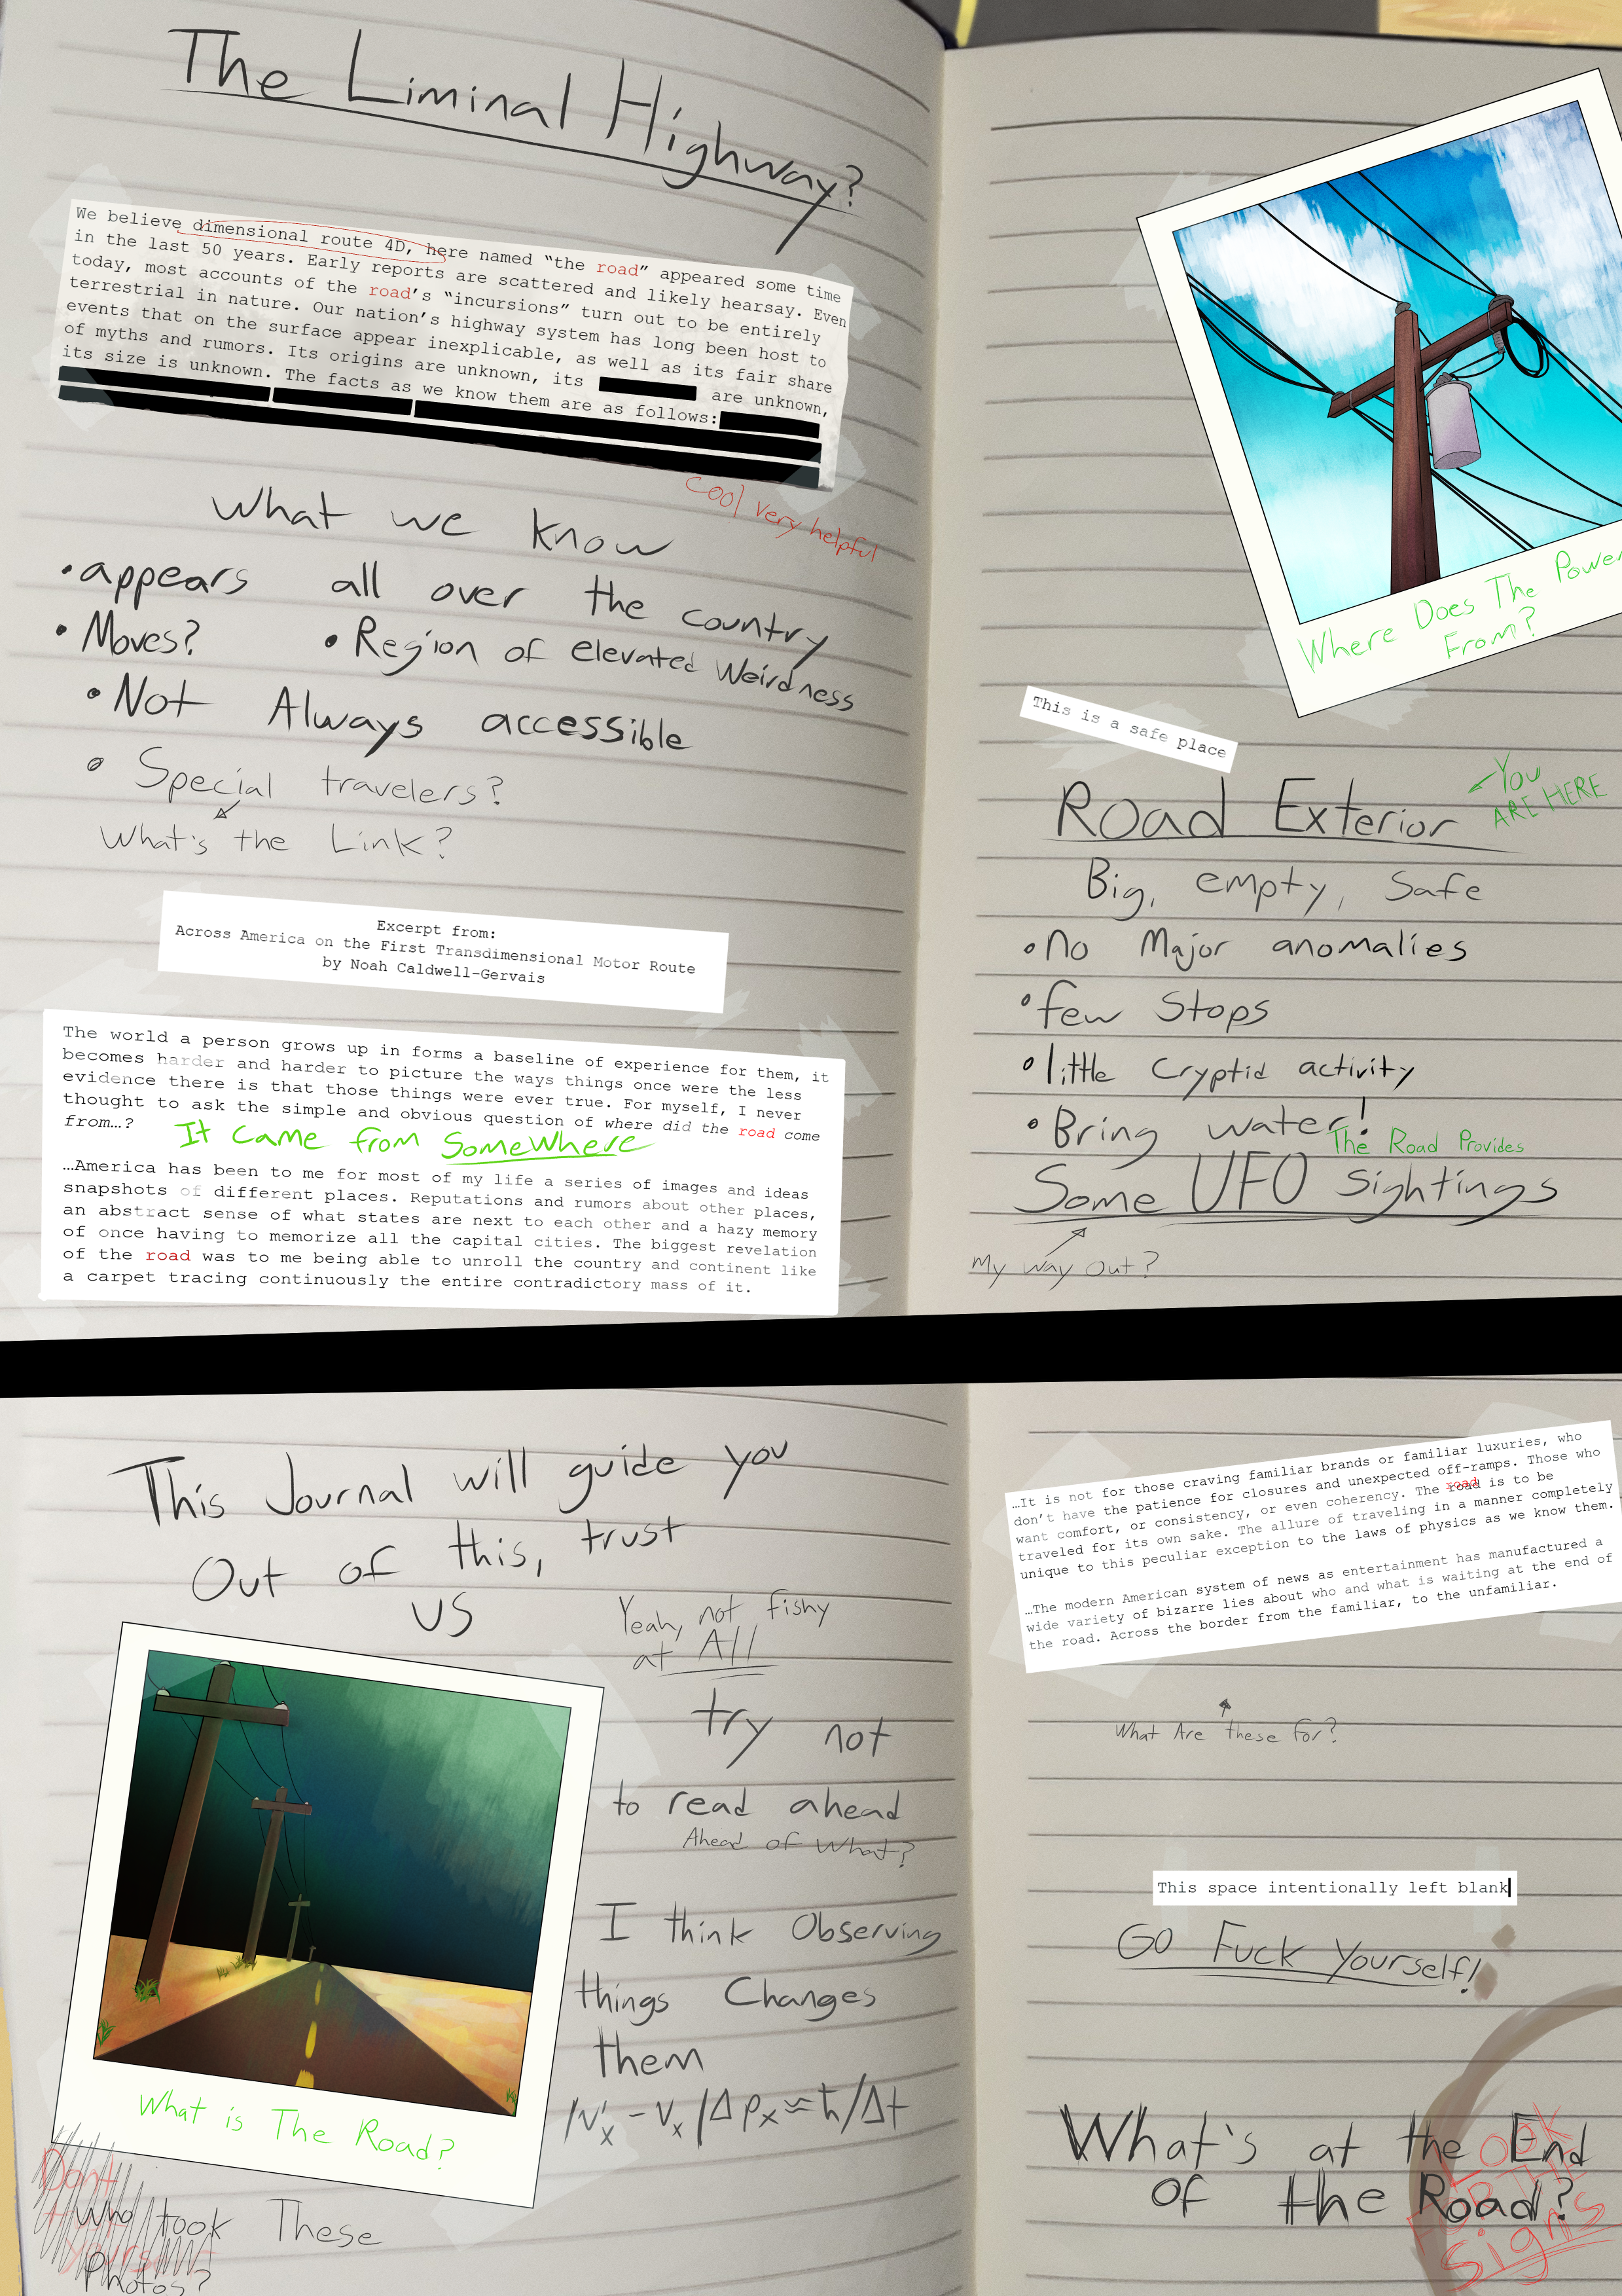 The Liminal Highway?
We believe dimensional route 4D, here named “the road” appeared some time
in the last 50 years. Early reports are scattered and likely hearsay. Even
today, most accounts of the road’s “incursions” turn out to be entirely
terrestrial in nature. Our nation’s highway system has long been host to
events that on the surface appear inexplicable, as well as its fair share
of myths and rumors. Its origins are unknown, its are unknown,
its size is unknown. The facts as we know them are as follows:
Cool very helpful
What we know
•appears all over the country
• Moves? • Region of elevated Weirdness
• Not Always accessible
• Special travelers?
What's the Link?
Excerpt from:
Across America on the First Transdimensional Motor Route
by Noah Caldwell-Gervais
The world a person grows up in forms a baseline of experience for them, it
becomes harder and harder to picture the ways things once were the less
evidence there is that those things were ever true. For myself, I never
thought to ask the simple and obvious question of where did the road come
from…?
It Came from SomeWhere
…America has been to me for most of my life a series of images and ideas
snapshots of different places. Reputations and rumors about other places,
an abstract sense of what states are next to each other and a hazy memory
of once having to memorize all the capital cities. The biggest revelation
of the road was to me being able to unroll the country and continent like
a carpet tracing continuously the entire contradictory mass of it.
Where Does The Power
From?
This is a safe place
Road Exterior
You
ARE HERE
Big, empty, Safe
•No Major anomalies
•few Stops
•little Cryptid activity
•Bring water!
The Road Provides
Some UFO Sightings
My Way Out?
This Journal will guide you
Out of this, trust
us
Yeah, not fishy
at All
try not
to read ahead
Ahead of What?
I think Observing
things Changes
them
|v'x - vx|Δpx≈ħ/Δt
What is The Road?
Dont
Who took These
Photos?
…It is not for those craving familiar brands or familiar luxuries, who
don’t have the patience for closures and unexpected off-ramps. Those who
want comfort, or consistency, or even coherency. The road is to be
traveled for its own sake. The allure of traveling in a manner completely
unique to this peculiar exception to the laws of physics as we know them.
…The modern American system of news as entertainment has manufactured a
wide variety of bizarre lies about who and what is waiting at the end of
the road. Across the border from the familiar, to the unfamiliar.
What Are these for?
This space intentionally left blank
GO Fuck Yourself!
What's at the End
of the Road?
LOOK
FOR THE
Signs